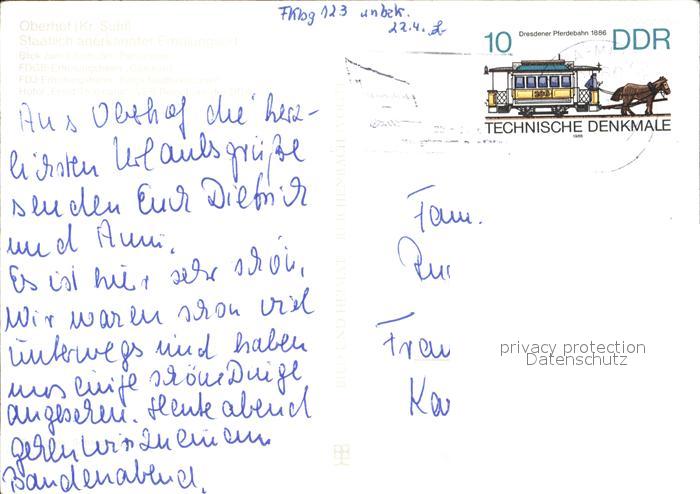 Oberhof (Kr. Suhl)
Staatlich anerkannter Erholungsort
Fkbg 123 unbek.
22.4.
10 Dresdener Pferdebahn 1886 DDR
TECHNISCHE DENKMALE
1986
Aus Oberhof die herz-
lichsten Urlaubsgrüße
senden Euch Dietrich
und Anni.
Es ist hier sehr schön.
Wir waren schon viel
unterwegs und haben
uns einige schöne Dinge
angesehen. Heute abend
gehen wir zu einem
Baudenabend.
BILD UND HEIMAT REICHENBACH
Fam.
Frau
privacy protection
Datenschutz